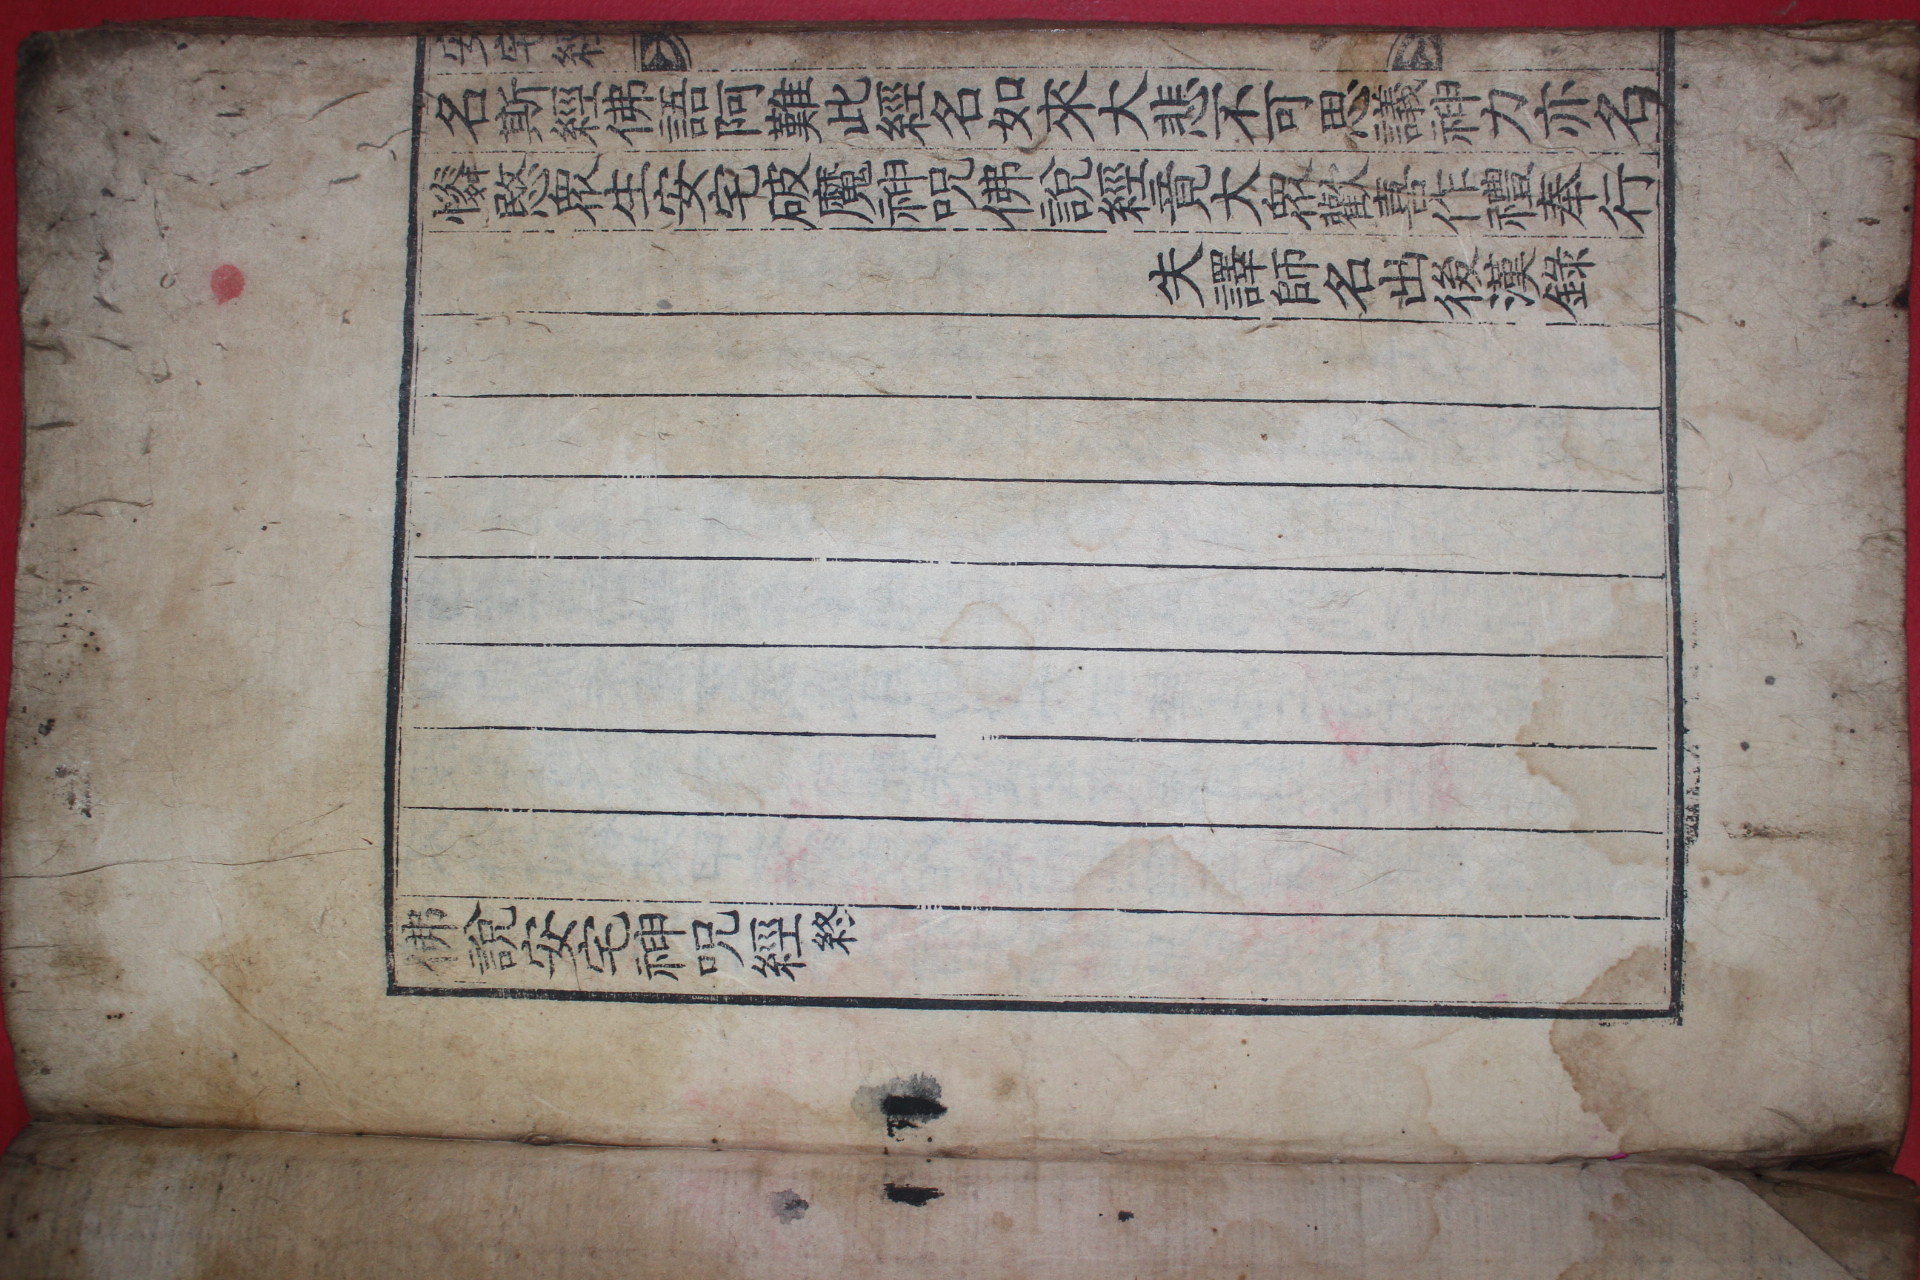 安宅經
名斯經佛語阿難此經名如來大悲不可思議神力亦名
憐愍衆生安宅破魔神呪佛說經竟大衆歡喜作禮奉行
失譯師名出後漢錄
佛說安宅神呪經終